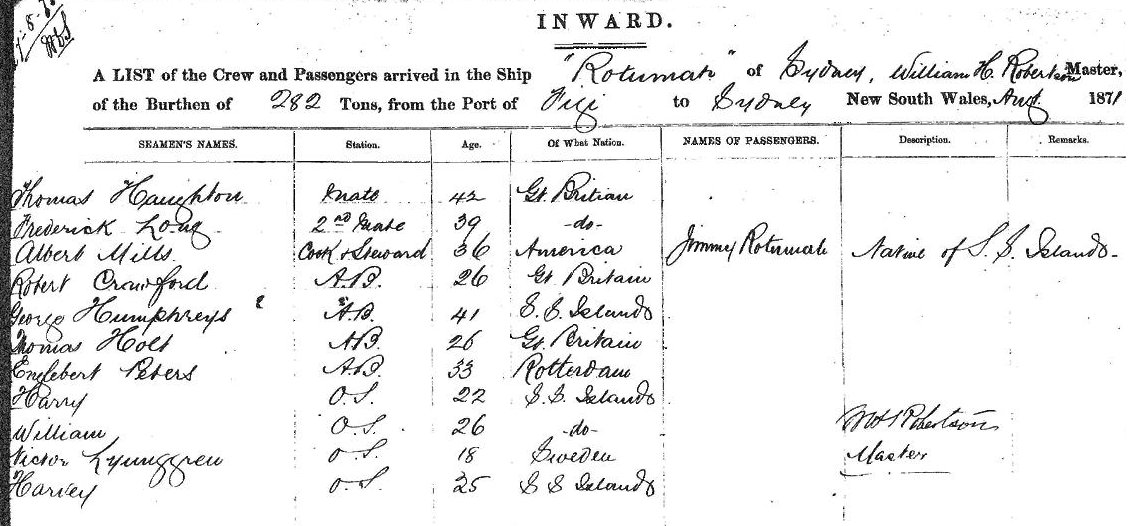 INWARD.
A LIST of the Crew and Passengers arrived in the Ship "Rotumah" of Sydney, William H. Robertson Master,
of the Burthen of 282 Tons, from the Port of Fiji to Sydney New South Wales, Augt 1871
SEAMEN'S NAMES. Station. Age. Of What Nation. NAMES OF PASSENGERS. Description. Remarks.
Thomas Haughton Mate 42 Gt. Britian
Frederick Long 2nd Mate 39 -do-
Albert Mills Cook & Steward 36 America Jimmy Rotumah Native of S. S. Islands-
Robert Crawford A.B. 26 Gt Britain
George Humphreys A.B. 41 S. S. Islands
Thomas Holt AB. 26 Gt. Britain
Englebert Peters AB. 33 Rotterdam
Harry O.S. 22 S. S. Islands
William O.S. 26 -do- WH Robertson
Victor Lyunggren O.S. 18 Sweden Master
Harvey O.S. 25 S S Islands